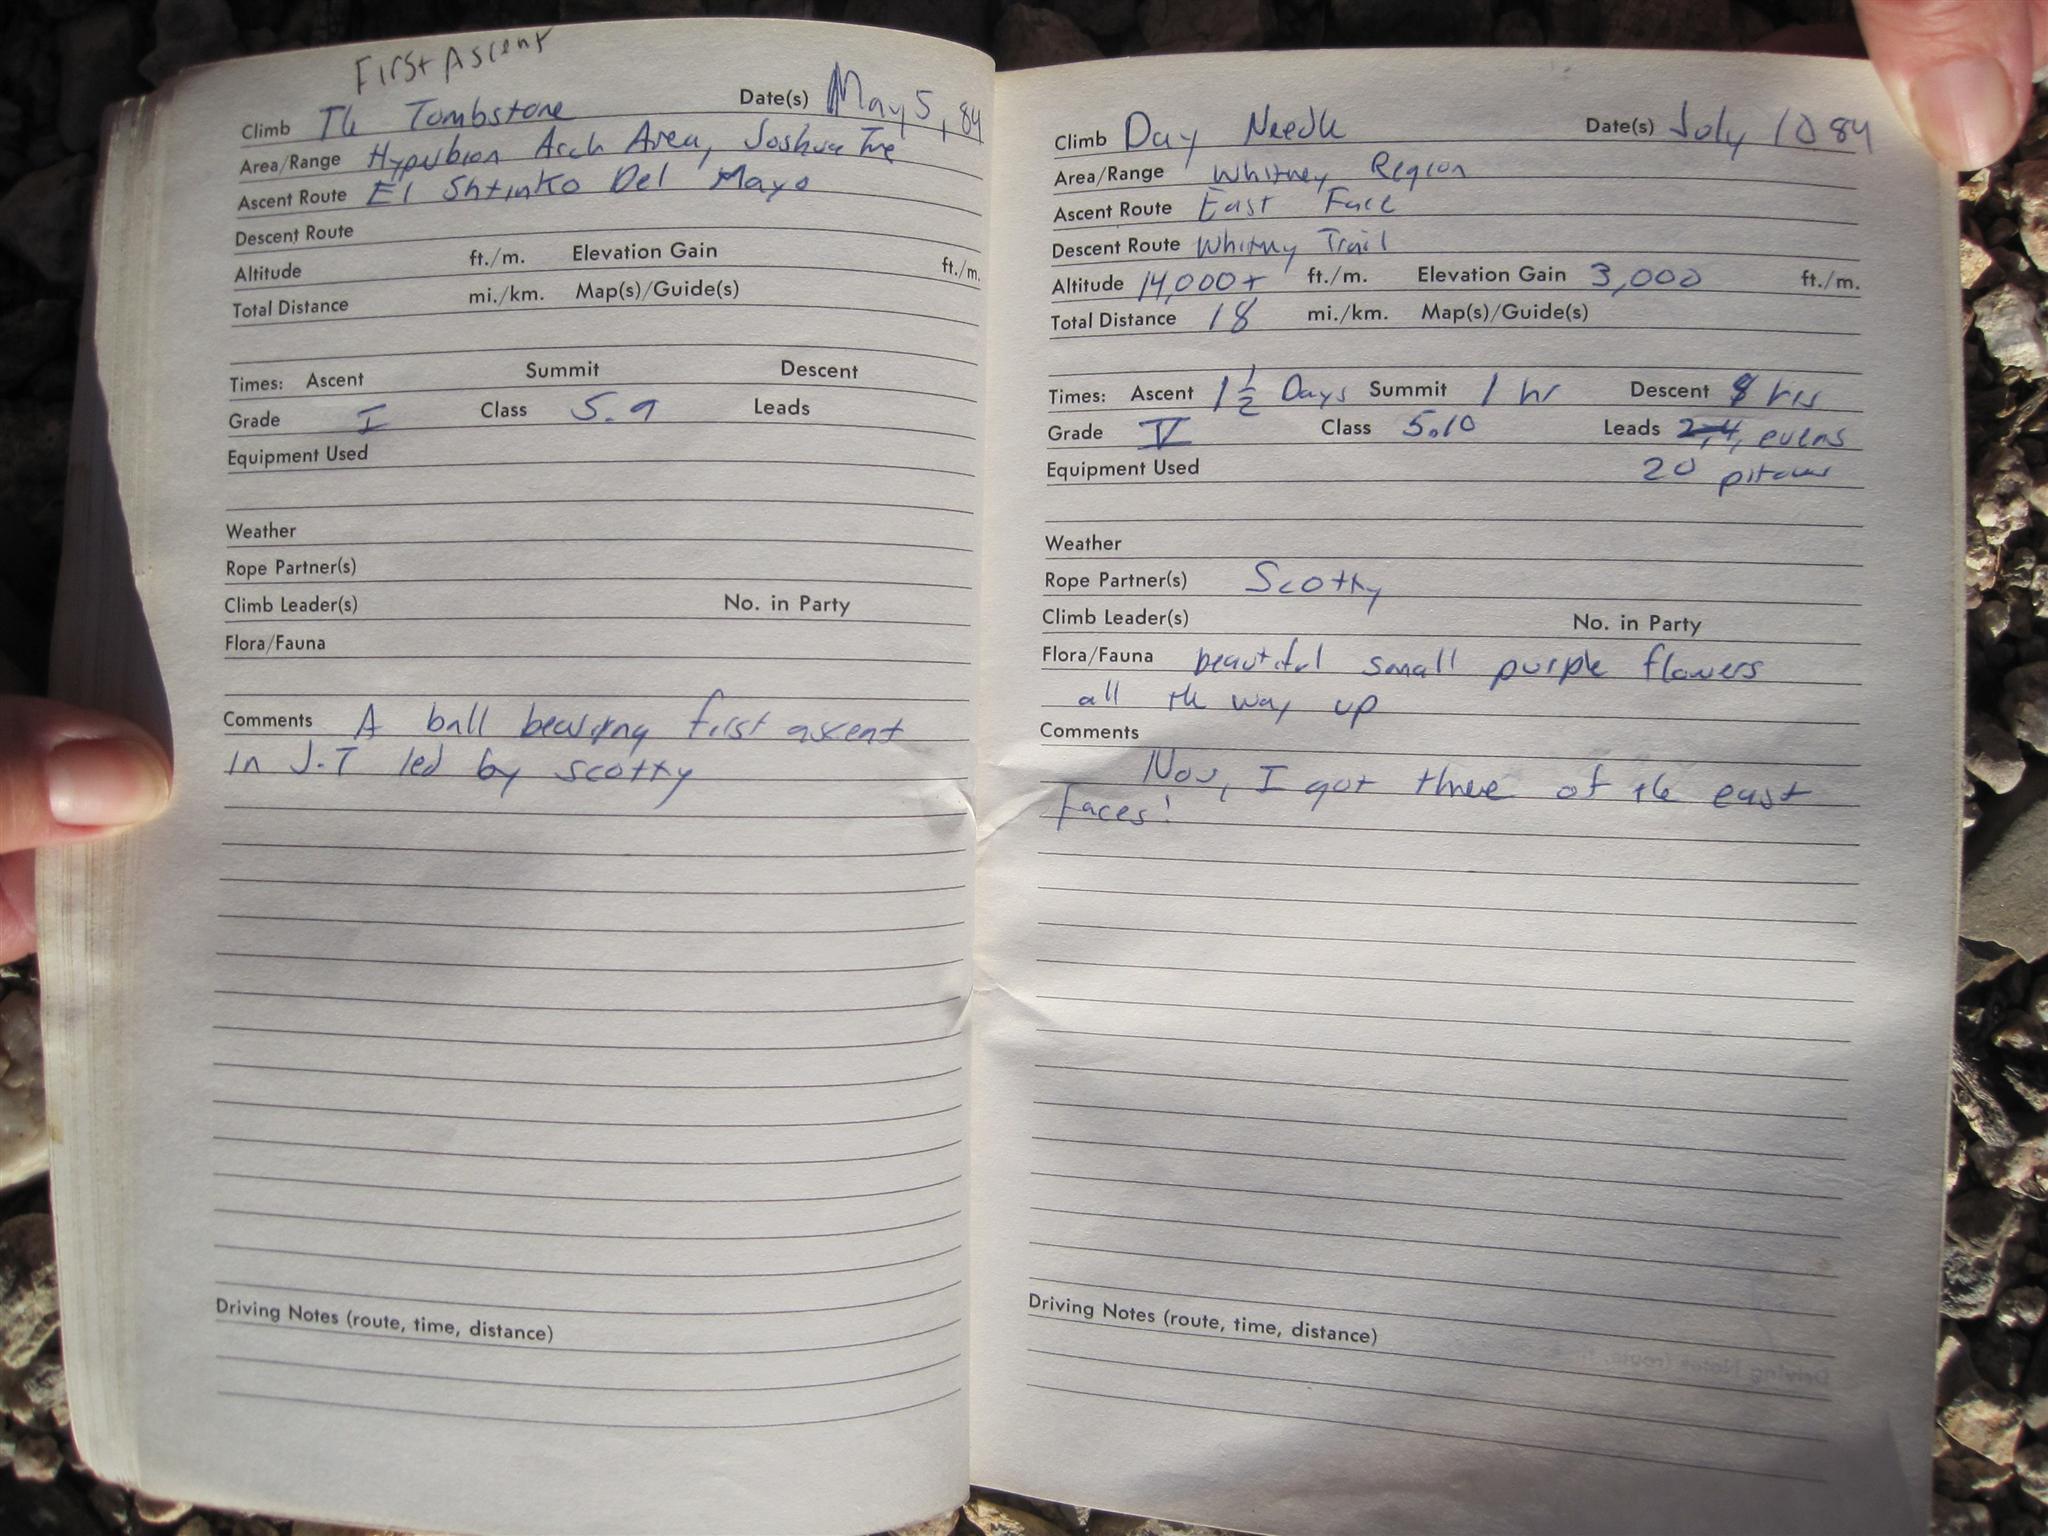 First Ascent
Climb The Tombstone Date(s) May 5, 84
Area/Range Hyperbion Arch Area, Joshua Tree
Ascent Route El Shtinko Del Mayo
Descent Route
Altitude ft./m. Elevation Gain ft./m.
Total Distance mi./km. Map(s)/Guide(s)
Times: Ascent Summit Descent
Grade I Class 5.9 Leads
Equipment Used
Weather
Rope Partner(s)
Climb Leader(s) No. in Party
Flora/Fauna
Comments A ball bearing first ascent
in J.T led by Scotty
Driving Notes (route, time, distance)
Climb Day Needle Date(s) July 10 84
Area/Range Whitney Region
Ascent Route East Face
Descent Route Whitney Trail
Altitude 14,000+ ft./m. Elevation Gain 3,000 ft./m.
Total Distance 18 mi./km. Map(s)/Guide(s)
Times: Ascent 1 1/2 Days Summit 1 hr Descent 8 hrs
Grade V Class 5.10 Leads 2,4, evens
Equipment Used 20 pitches
Weather
Rope Partner(s) Scotty
Climb Leader(s) No. in Party
Flora/Fauna beautiful small purple flowers
all the way up
Comments
Now, I got three of the east
faces!
Driving Notes (route, time, distance)